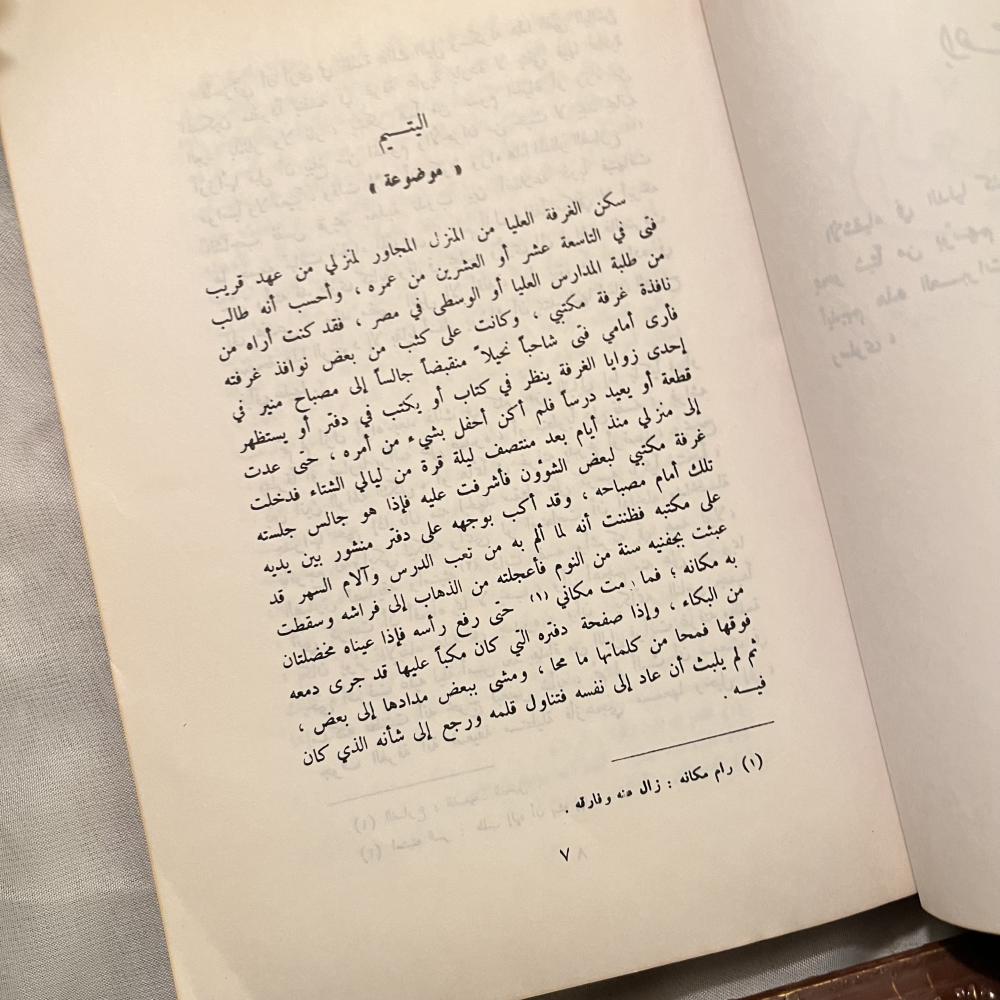 اليتيم
« موضوعة »
سكن الغرفة العليا من المنزل المجاور لمنزلي من عهد قريب
فتى في التاسعة عشر أو العشرين من عمره ، وأحسب أنه طالب
من طلبة المدارس العليا أو الوسطى في مصر ، فقد كنت أراه من
نافذة غرفة مكتبي ، وكانت على كثب من بعض نوافذ غرفته
فأرى أمامي فتى شاحباً نحيلاً منقبضاً جالساً إلى مصباح منير في
إحدى زوايا الغرفة ينظر في كتاب أو يكتب في دفتر أو يستظهر
قطعة أو يعيد درساً فلم أكن أحفل بشيء من أمره ، حتى عدت
إلى منزلي منذ أيام بعد منتصف ليلة قرة من ليالي الشتاء فدخلت
غرفة مكتبي لبعض الشؤون فأشرفت عليه فإذا هو جالس جلسته
تلك أمام مصباحه ، وقد أكب بوجهه على دفتر منشور بين يديه
على مكتبه فظننت أنه لما ألم به من تعب الدرس وآلام السهر قد
عبثت بجفنيه سنة من النوم فأعجلته من الذهاب إلى فراشه وسقطت
به مكانه ؛ فما رمت مكاني (١) حتى رفع رأسه فإذا عيناه مخضلتان
من البكاء ، وإذا صفحة دفتره التي كان مكباً عليها قد جرى دمعه
فوقها فمحا من كلماتها ما محا ، ومشى ببعض مدادها إلى بعض ،
ثم لم يلبث أن عاد إلى نفسه فتناول قلمه ورجع إلى شأنه الذي كان
فيـه .
(١) رام مكانه : زال منه وفارقه .
٧